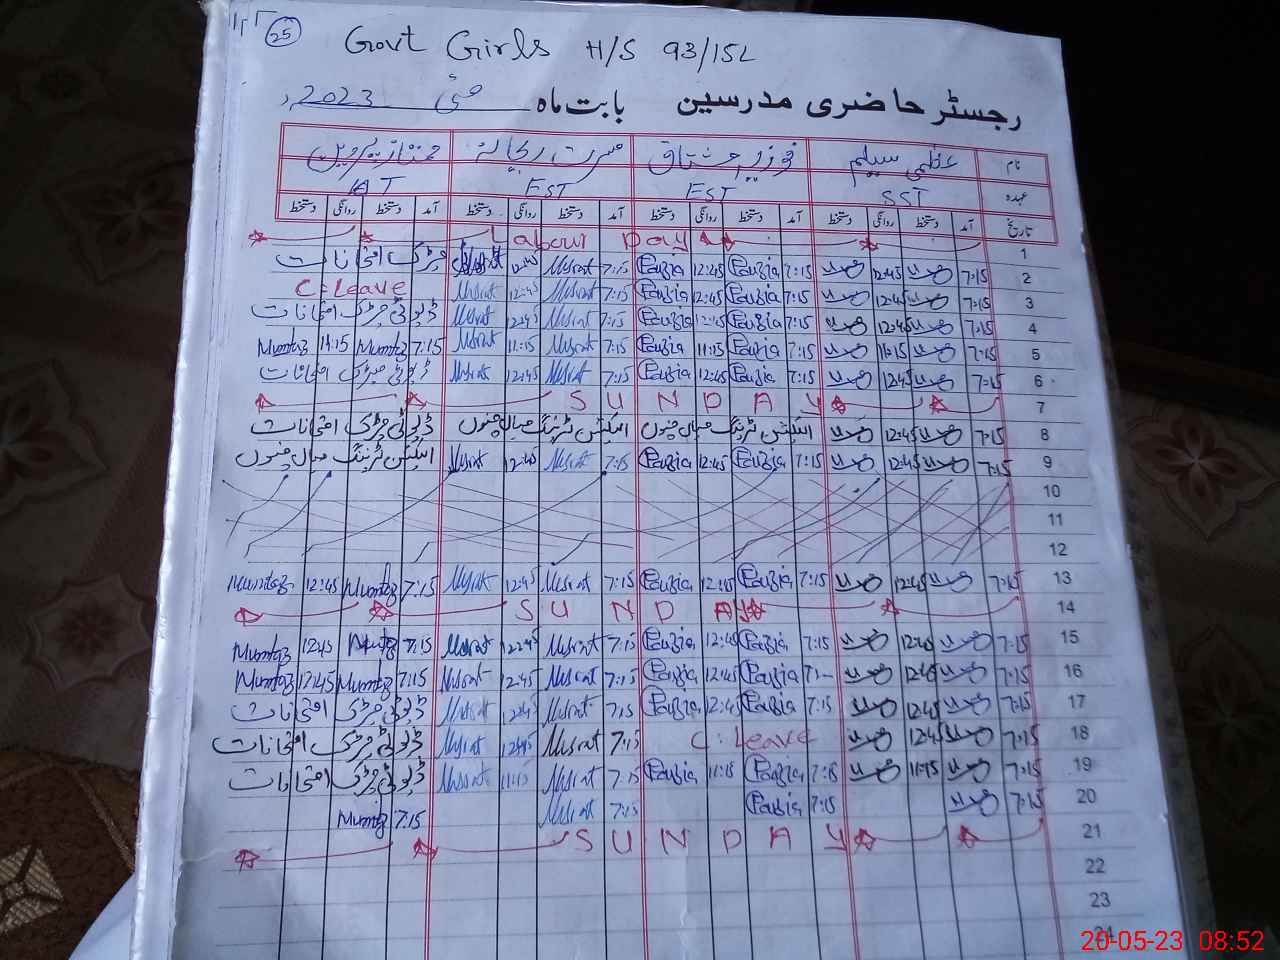 25
Govt Girls H/S 93/15L
رجسٹر حاضری مدرسین بابت ماہ مئی 2023ء
نام عظمیٰ سلیم فوزیہ مشتاق مسرت ریحانہ ممتاز پروین
عہدہ SST EST EST
تاریخ آمد دستخط روانگی دستخط آمد دستخط روانگی دستخط آمد دستخط روانگی دستخط آمد دستخط روانگی دستخط
1 Labour Day
2 7:15 12:45 7:15 Fouzia 12:45 Fouzia 7:15 Musrat 12:45 Musrat میٹرک امتحانات
3 7:15 12:45 7:15 Fouzia 12:45 Fouzia 7:15 Musrat 12:45 Musrat C.Leave
4 7:15 12:45 7:15 Fouzia 12:45 Fouzia 7:15 Musrat 12:45 Musrat ڈیوٹی میٹرک امتحانات
5 7:15 11:15 7:15 Fouzia 11:15 Fouzia 7:15 Musrat 11:15 Musrat 7:15 Mumtaz 11:15 Mumtaz
6 7:15 12:45 7:15 Fouzia 12:45 Fouzia 7:15 Musrat 12:45 Musrat ڈیوٹی میٹرک امتحانات
7 SUNDAY
8 7:15 12:45 الیکشن ٹریننگ میاں چنوں الیکشن ٹریننگ میاں چنوں ڈیوٹی میٹرک امتحانات
9 7:15 12:45 7:15 Fouzia 12:45 Fouzia 7:15 Musrat 12:45 Musrat الیکشن ٹریننگ میاں چنوں
10
11
12
13 7:15 12:45 7:15 Fouzia 12:45 Fouzia 7:15 Musrat 12:45 Musrat 7:15 Mumtaz 12:45 Mumtaz
14 SUNDAY
15 7:15 12:45 7:15 Fouzia 12:45 Fouzia 7:15 Musrat 12:45 Musrat 7:15 Mumtaz 12:45 Mumtaz
16 7:15 12:45 Fouzia 12:45 Fouzia 7:15 Musrat 12:45 Musrat 7:15 Mumtaz 12:45 Mumtaz
17 7:15 12:45 7:15 Fouzia 12:45 Fouzia 7:15 Musrat 12:45 Musrat ڈیوٹی میٹرک امتحانات
18 7:15 12:45 C.Leave 7:15 Musrat 12:45 Musrat ڈیوٹی میٹرک امتحانات
19 7:15 11:45 7:15 Fouzia 11:15 Fouzia 7:15 Musrat 11:45 Musrat ڈیوٹی میٹرک امتحانات
20 7:15 7:15 Fouzia 7:15 Musrat 7:15 Mumtaz
21 SUNDAY
22
23
24
20-05-23 08:52